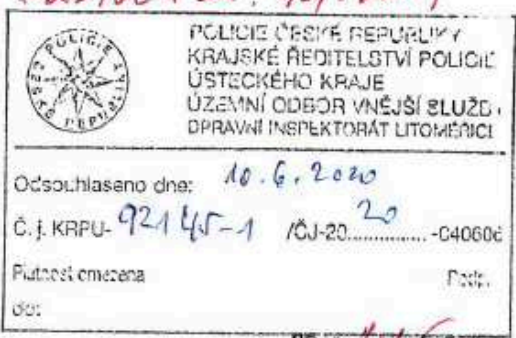 POLICIE ČESKÉ REPUBLIKY
KRAJSKÉ ŘEDITELSTVÍ POLICIE
ÚSTECKÉHO KRAJE
ÚZEMNÍ ODBOR VNĚJŠÍ SLUŽB
DPRAVNÍ INSPEKTORÁT LITOMĚŘICE
POLICIE
Odsouhlaseno dne: 10. 6. 2020
Č. j. KRPU- 92145-1 /ČJ-20 20 -040606
Platnost omezena
do: